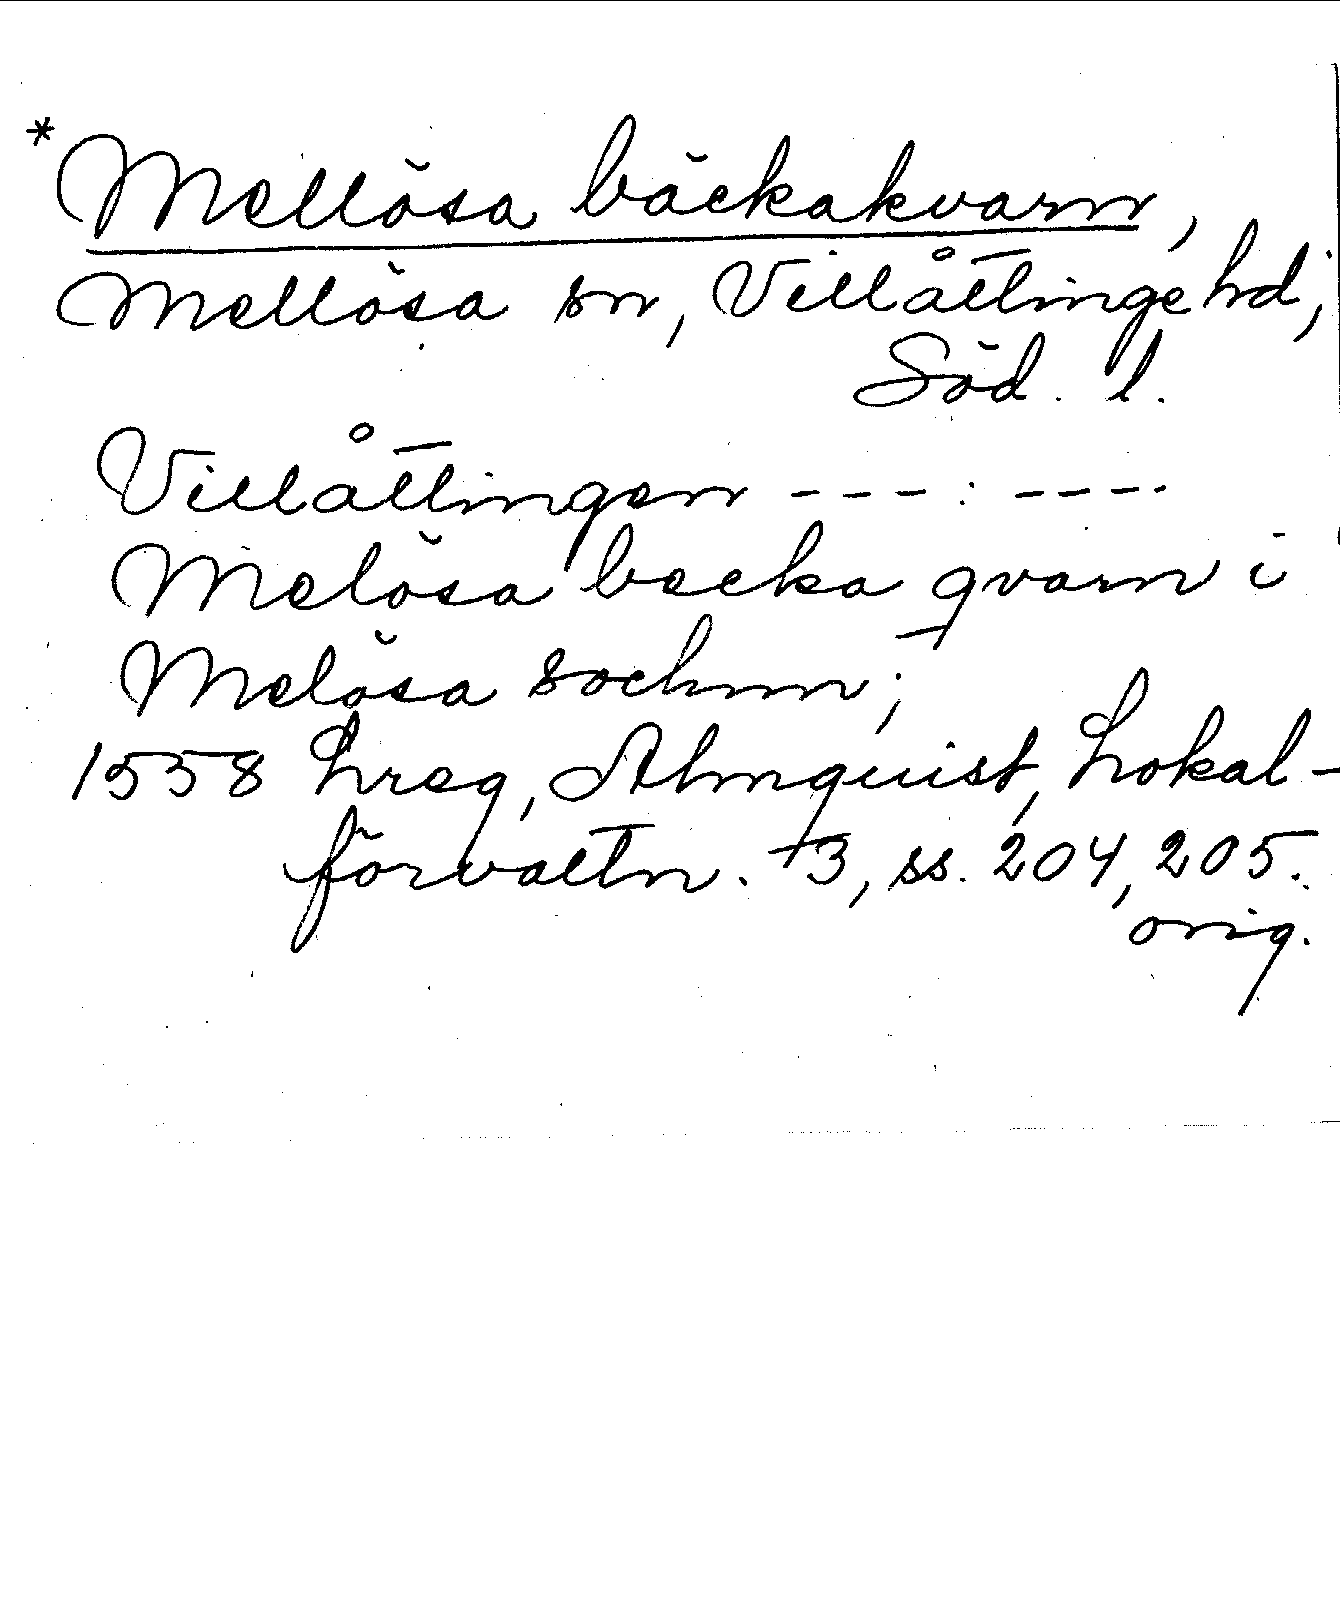 * Mellösa bäckakvarn,
Mellösa sn, Villåttinge hd,
Söd. l.
Villåttingen ---: ----
Melösa becka qvarn i
Melösa sochnn;
1558 Lreg, Almquist, Lokal-
förvaltn. 3, ss. 204, 205.
orig.